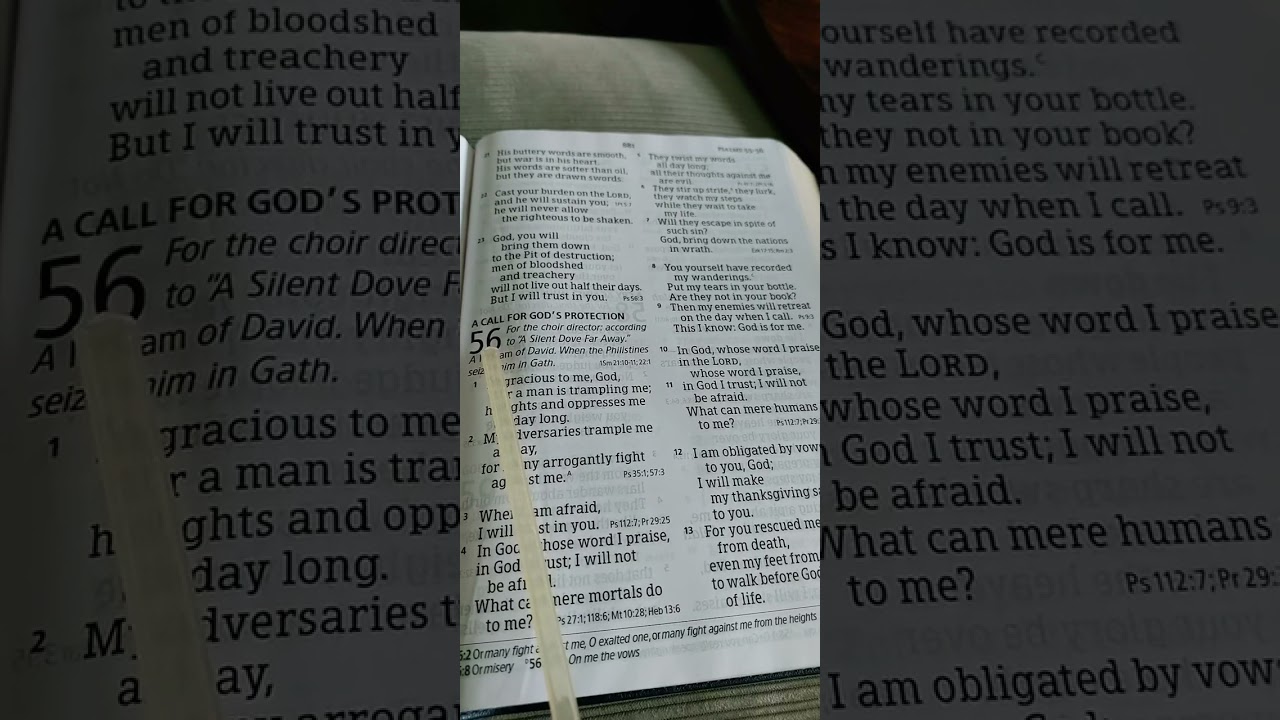 men of bloodshed
and treachery
will not live out half
But I will trust in
A CALL FOR GOD'S PROT
56 For the choir direc
to "A Silent Dove F
A am of David. When
seiz him in Gath.
1 gracious to me
r a man is tra
h ghts and opp
day long.
2 M dversaries t
a ay,
y arrogan
881
PSALMS 55–56
21 His buttery words are smooth,
but war is in his heart.
His words are softer than oil,
but they are drawn swords.
22 Cast your burden on the LORD,
and he will sustain you;
he will never allow
the righteous to be shaken.
23 God, you will
bring them down
to the Pit of destruction;
men of bloodshed
and treachery
will not live out half their days.
But I will trust in you. Ps 56:3
A CALL FOR GOD'S PROTECTION
56 For the choir director: according
to "A Silent Dove Far Away."
A am of David. When the Philistines
seiz him in Gath. 1Sm 21:10-11; 22:1
1 gracious to me, God,
r a man is trampling me;
h ghts and oppresses me
day long.
2 M dversaries trample me
a ay,
for ny arrogantly fight
ag st me.A Ps 35:1; 57:3
3 When am afraid,
I will st in you. Ps 112:7; Pr 29:25
4 In God whose word I praise,
in God ust; I will not
be af d.
What ca mere mortals do
to me? Ps 27:1; 118:6; Mt 10:28; Heb 13:6
5 They twist my words
all day long;
all their thoughts against me
are evil.
6 They stir up strife, they lurk,
they watch my steps
while they wait to take
my life.
7 Will they escape in spite of
such sin?
God, bring down the nations
in wrath.
8 You yourself have recorded
my wanderings.C
Put my tears in your bottle.
Are they not in your book?
9 Then my enemies will retreat
on the day when I call. Ps 9:3
This I know: God is for me.
10 In God, whose word I praise
in the LORD,
whose word I praise,
11 in God I trust; I will not
be afraid.
What can mere humans
to me? Ps 112:7; Pr 29:
12 I am obligated by vow
to you, God;
I will make
my thanksgiving sa
to you.
13 For you rescued me
from death,
even my feet from
to walk before God
of life.
6:2 Or many fight st me, O exalted one, or many fight against me from the heights
6:8 Or misery D56 On me the vows
ourself have recorded
wanderings.c
ny tears in your bottle.
they not in your book?
n my enemies will retreat
the day when I call. Ps 9:3
s I know: God is for me.
God, whose word I praise
the LORD,
whose word I praise,
God I trust; I will not
be afraid.
What can mere humans
to me? Ps 112:7; Pr 29:
I am obligated by vow